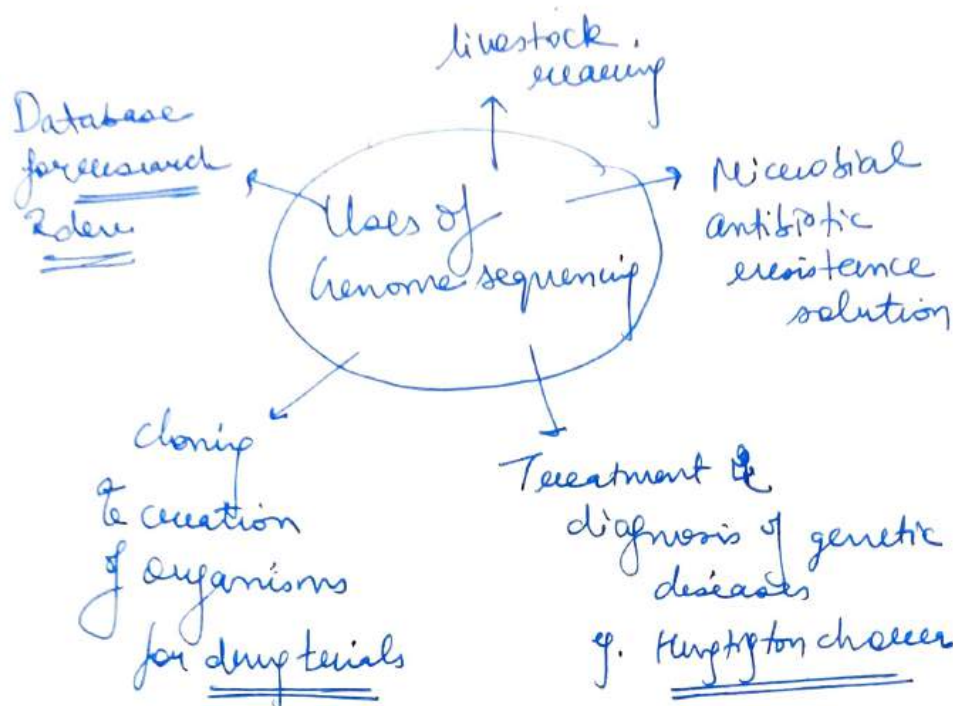 livestock
rearing
Database
for research
Uses of
Genome sequencing
Microbial
antibiotic
resistance
solution
Cloning
& creation
of organisms
for drug trials
Treatment &
diagnosis of genetic
diseases
eg. Hungtington chorea